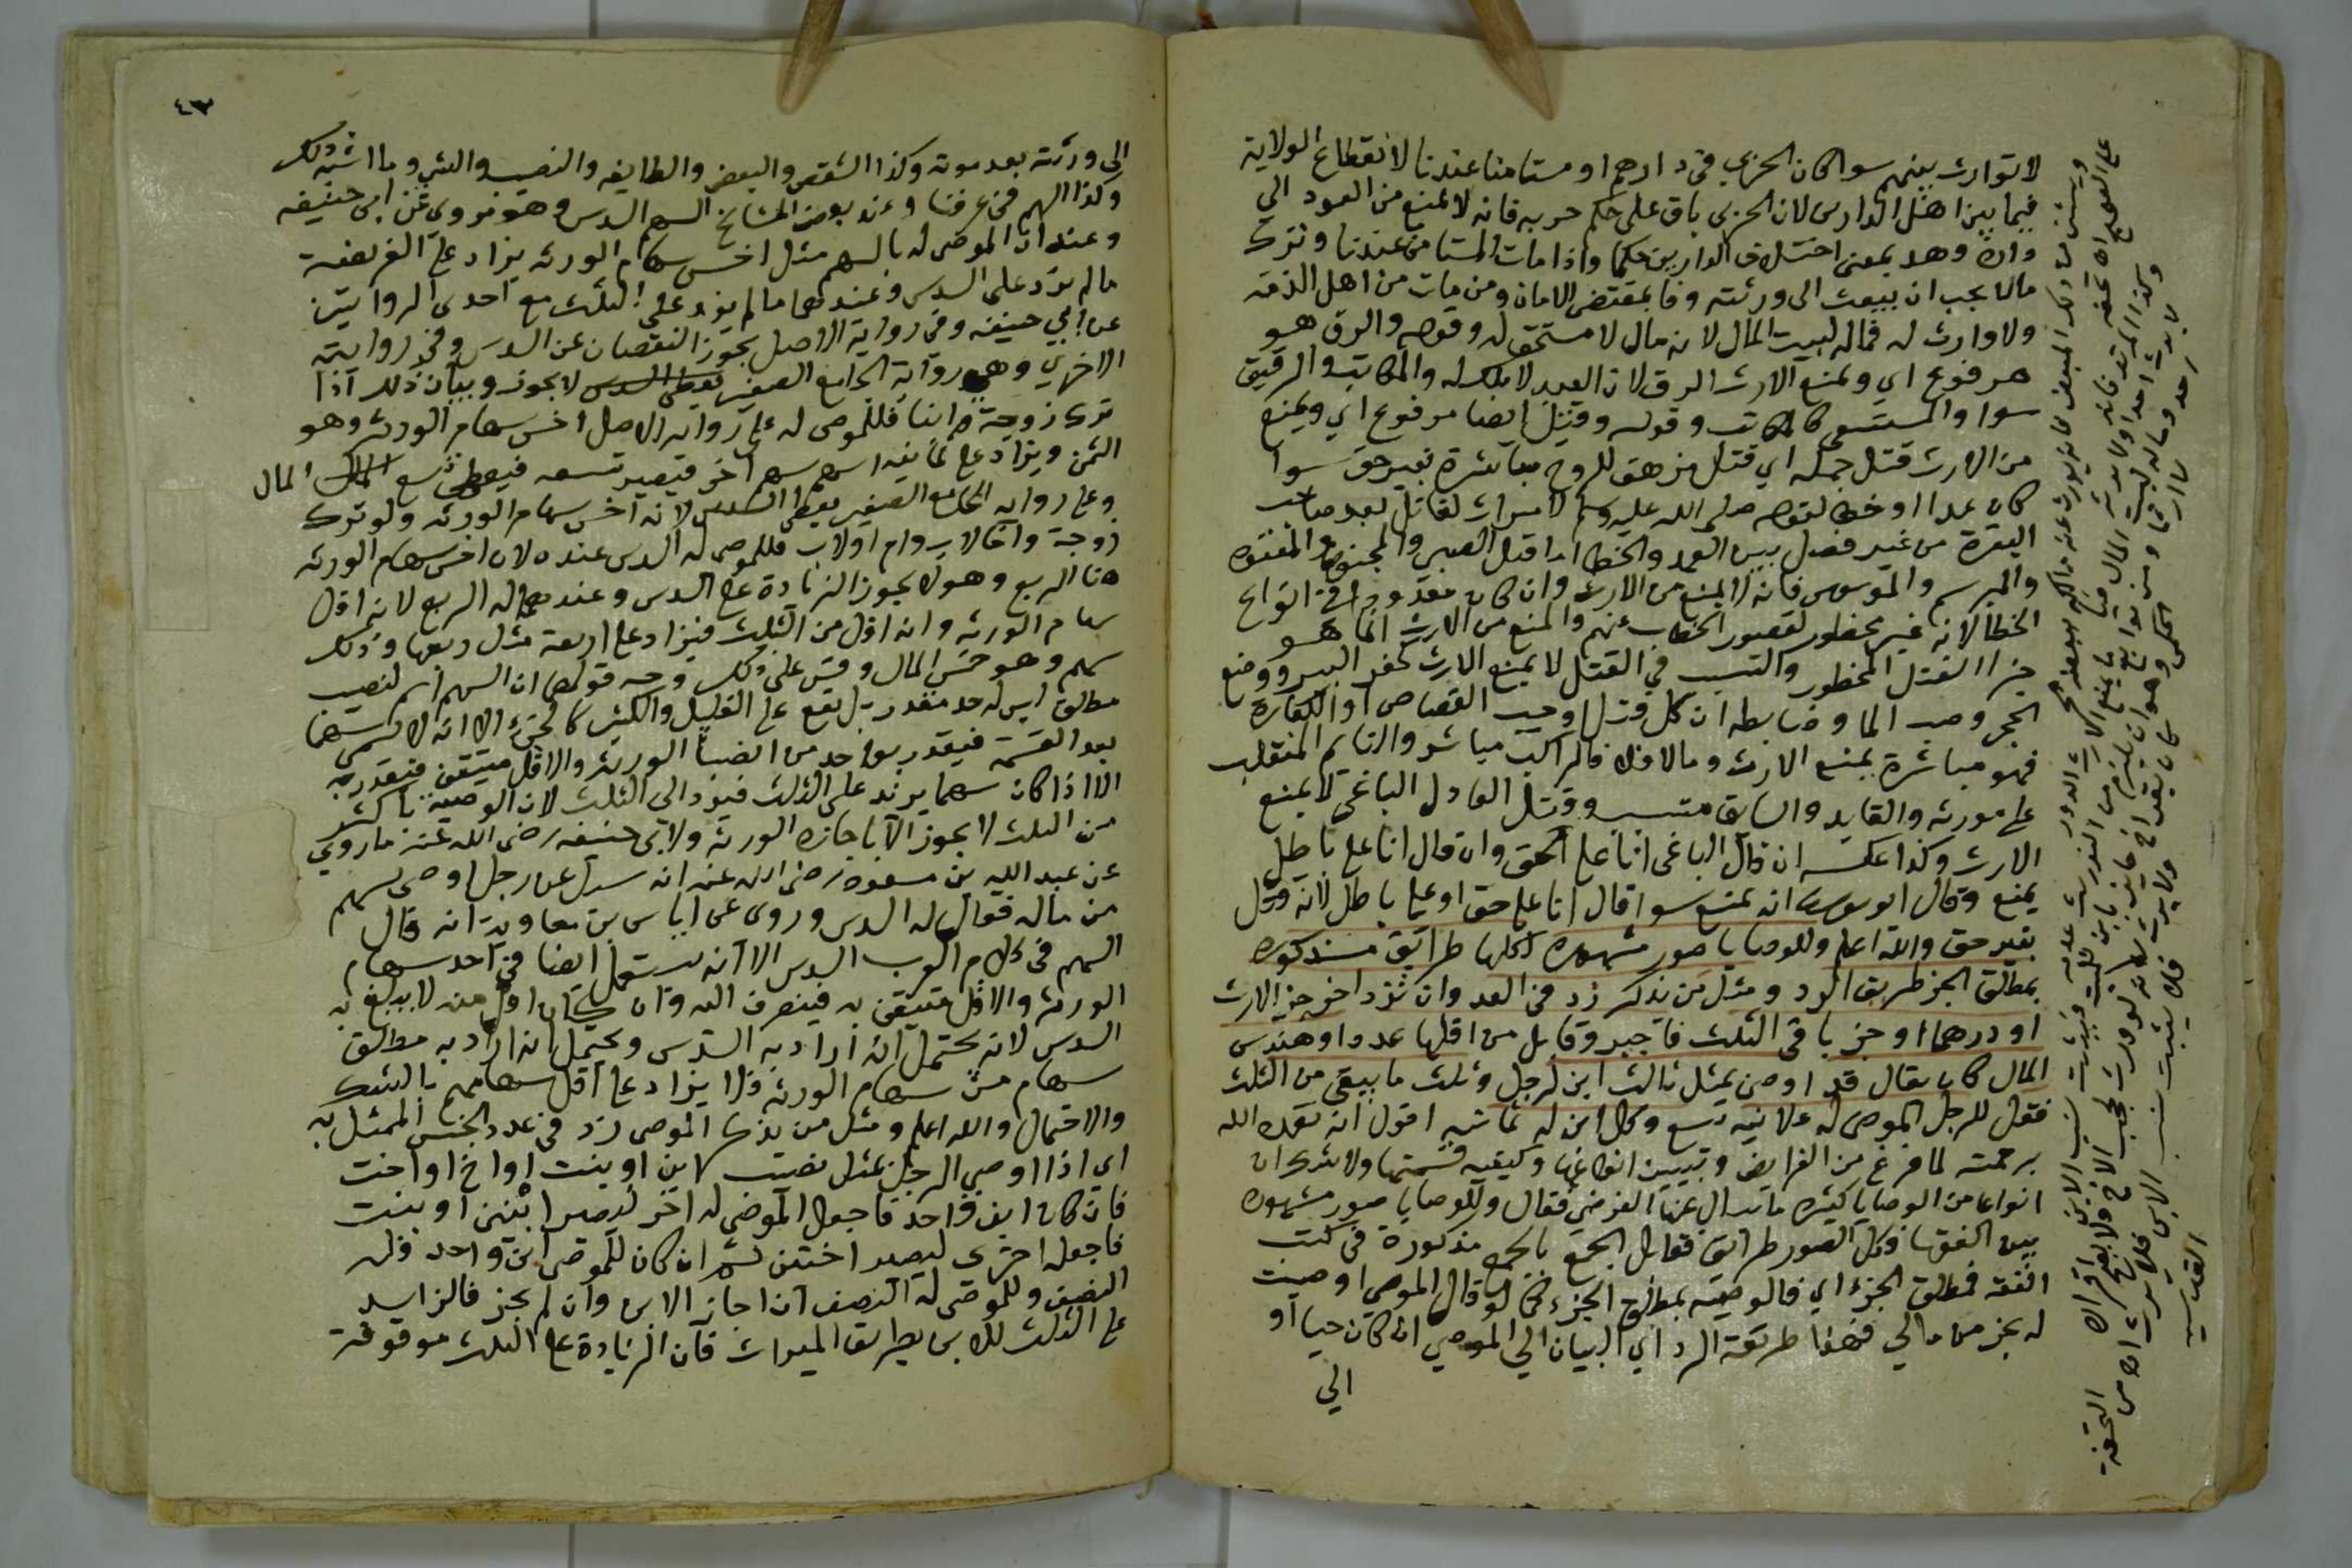 لا توارث بينهم سوا كان الحربي في دارهم او مستامنا عندنا لانقطاع الولاية
فيما بين اهل الدارين لان الحربي باق على حكم حربه فانه لا يمنع من العود الي
داره وهذ بمعنى اختلاف الدارين حكما واذا مات المستامن عندنا وترك
مالا يجب ان يبعث الى ورثته وفا بمقتضى الامان ومن مات من اهل الذمة
ولا وارث له فماله لبيت المال لانه مال لا مستحق له وقوله والرق هو
مرفوع اي ويمنع الارث الرق لان العبد لا ملك له والمكاتب والرقيق
سوا والمستسعى كالمكاتب وقوله وقتل ايضا مرفوع اي ويمنع
من الارث قتل جملة اي قتل مزهق للروح مباشرة بغير حق سوا
كان عمدا او خطا لقوله صلى الله عليه وسلم لا ميراث لقاتل بعد صاحب
البقرة من غير فصل بين العمد والخطا اما قتل الصبي والمجنون والمعتوه
والمبرسم والموسوس فانه لا يمنع من الارث وان كان معدودا في انواع
الخطا لانه غير محظور لقصور الخطاب عنهم والمنع من الارث انما هو
جزا القتل المحظور والتسبب في القتل لا يمنع الارث كحفر البير ووضع
الحجر وصب الما وضابطه ان كل قتل اوجب القصاص او الكفارة
فهو مباشرة يمنع الارث وما لا فلا فالراكب مباشر والنايم المنقلب
على مورثه والقايد والسايق متسبب وقتل العادل الباغي لا يمنع
الارث وكذا عكسه ان قال الباغي انا على الحق وان قال انا على باطل
يمنع وقال ابو يوسف انه يمنع سوا قال انا على حق او على باطل لانه قتل
بغير حق والله اعلم وللوصايا صور مشهوره لكلها طرائق مذكوره
بمطلق الجز طريق الرد ومثل من يذكر زد في العد وان تزد اخر جز الارث
او درهما او جز باقي الثلث فاجبر وقابل من اقلها عددا وهندس
المال كما يقال قد اوصى بمثل ثالث ابن لرجل وثلث ما يبقى من الثلث
فقل للرجل الموصى له علانيه تسع وكل ابن له ثمانيه اقول انه تغمده الله
برحمته لما فرغ من الفرايض وتبيين انواعها وكيفيه قسمتها ولا شك ان
انواعا من الوصايا كثيره ما يسال عنها الفرضي فقال وللوصايا صور مشهوره
بين الفقها ولكل الصور طرائق فقابل الجمع بالجمع مذكورة في كتب
الفقه فمطلق الجزء اي فالوصيه بمطلق الجزء كما لو قال الموصي اوصيت
له بجز من مالي فهنا طريقة الرد اي البيان الى الموصي ان كان حيا او
الي
٤٣
الى ورثته بعد موته وكذا الشقص والبعض والطايفه والنصيب والشي وما اشبه ذلك
وكذا السهم في عرفنا وعند بعض المشايخ السهم السدس وهو مروي عن ابي حنيفه
وعنده ان الموصى له بالسهم مثل اخس سهام الورثه يزاد على الفريضة
ما لم يزد على السدس وعندهما ما لم يزد على الثلث مع احدى الروايتين
عن ابي حنيفه وفي رواية الاصل يجوز النقصان عن السدس وفي روايته
الاخرى وهي رواية الجامع الصغير يعطى السدس لا يجوز وبيان ذلك اذا
ترك زوجة وابنا فللموصى له على رواية الاصل اخس سهام الورثه وهو
الثمن ويزاد على ثمانيه اسهم سهم اخر فتصير تسعه فيعطى تسع المال المال
وعلى رواية الجامع الصغير يعطى السدس لانه اخس سهام الورثه ولو ترك
زوجة واخا لاب وام اولاب فللموصى له السدس عنده لان اخس سهام الورثه
هنا الربع وهو لا يجوز الزيادة على السدس وعندهما له الربع لانه اقل
سهام الورثه وانه اقل من الثلث فيزاد على اربعة مثل ربعها وذلك
سهم وهو خمس المال وقس على ذلك وجه قولهما ان السهم اسم لنصيب
مطلق ليس له حد مقدر بل يقع على القليل والكثير كالجزء الا انه لا يسمى سهما
بعد القسمة فيقدر بواحد من انصبا الورثه والاقل متيقن فيقدر به
الا اذا كان سهما يزيد على الثلث فيرد الى الثلث لان الوصيه باكثر
من الثلث لا يجوز الا باجازة الورثه ولابي حنيفه رضى الله عنه ما روي
عن عبد الله بن مسعود رضى الله عنه انه سئل عن رجل اوصى بسهم
من ماله فقال له السدس وروى عن اياس بن معاوية انه قال
السهم في كلام العرب السدس الا انه يستعمل ايضا في احد سهام
الورثه والاقل متيقن به فينصرف اليه وان كان اقل منه لا يبلغ به
السدس لانه يحتمل انه اراد به السدس ويحتمل انه اراد به مطلق
سهام من سهام الورثه فلا يزاد على اقل سهامهم بالشك
والاحتمال والله اعلم ومثل من يذكر الموصى زد في عدد الجنس الممثل به
اي اذا اوصى لرجل بمثل نصيب ابن او بنت او اخ او اخت
فان كان ابن واحد فاجعل الموصى له اخر ليصير ابنين او بنت
فاجعل اخرى ليصير اختين ثم ان كان للموصي ابن واحد فله
النصف وللموصى له النصف ان اجاز الابن وان لم يجز فالزايد
على الثلث للابن بطريق الميراث فان الزيادة على الثلث موقوفة